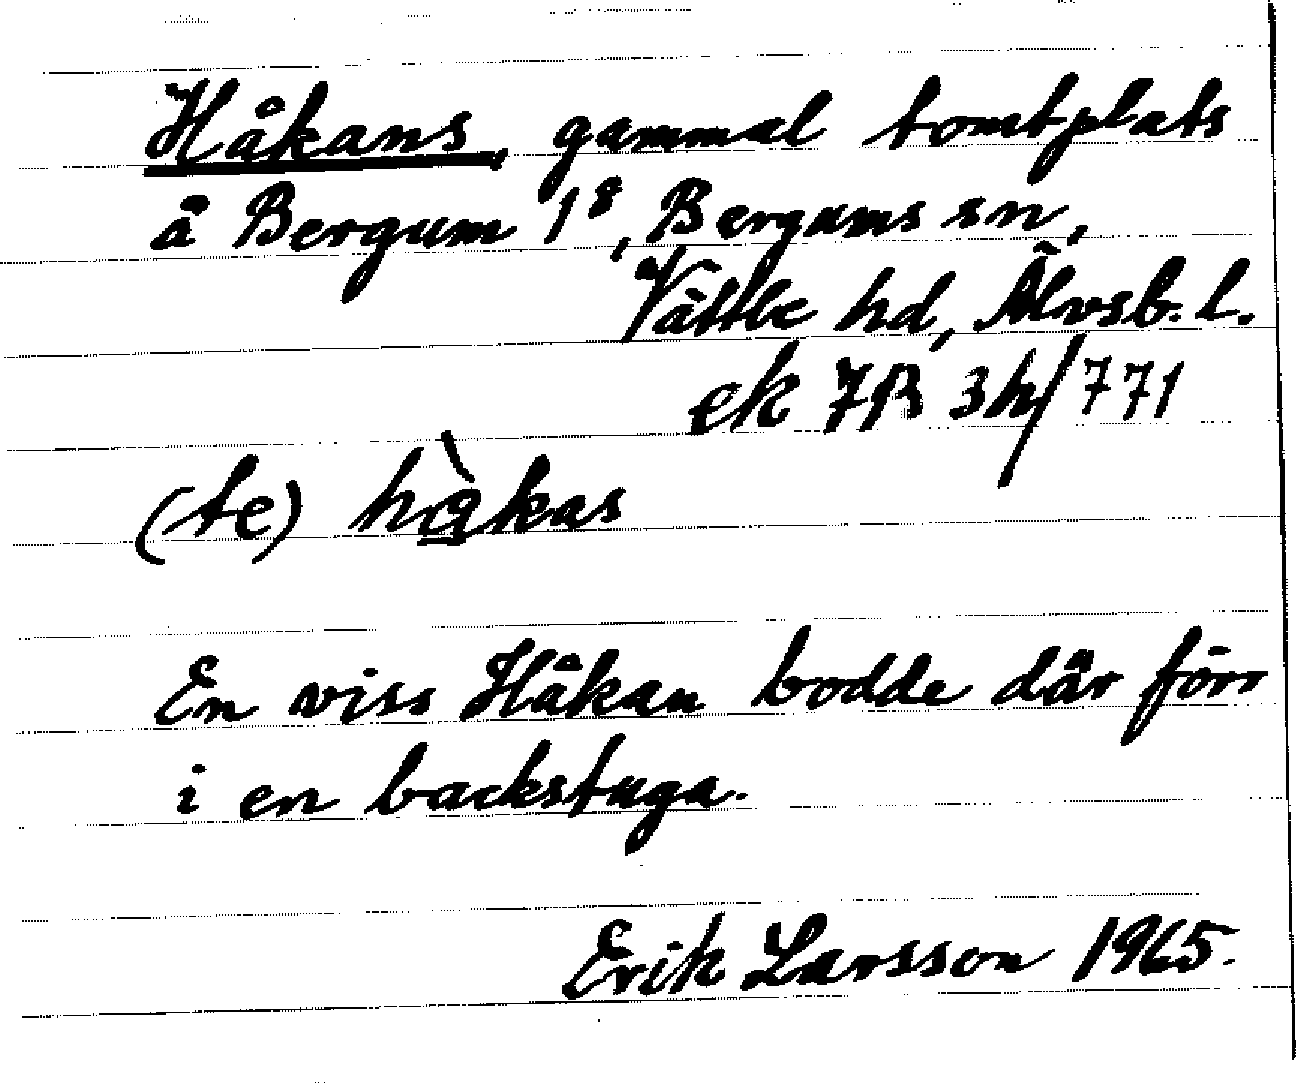 Håkans, gammal tomtplats
å Bergum 1⁸, Bergums sn,
Vättle hd, Älvsb. l.
ek 7B 3h/771
(te) hàkas
En viss Håkan bodde där förr
i en backstuga.
Erik Larsson 1965.